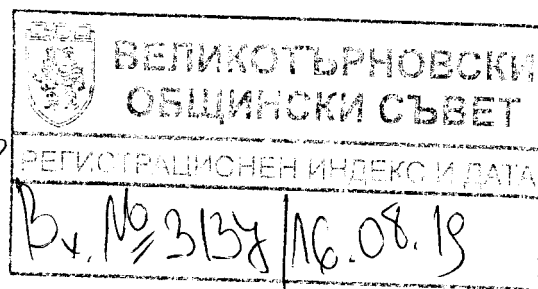 ВЕЛИКОТЪРНОВСКИ
ОБЩИНСКИ СЪВЕТ
РЕГИСТРАЦИОНЕН ИНДЕКС И ДАТА
Вх. №
16.08.19